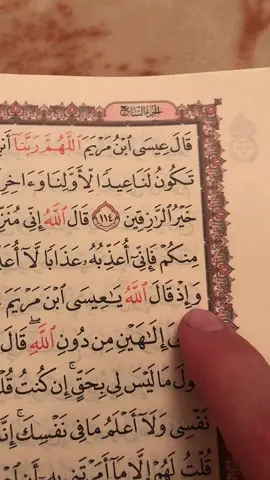 الجزء السابع
قَالَ عِيسَى ٱبْنُ مَرْيَمَ ٱللَّهُمَّ رَبَّنَآ
تَكُونُ لَنَا عِيدًا لِّأَوَّلِنَا وَءَاخِرِ
خَيْرُ ٱلرَّٰزِقِينَ ١١٤ قَالَ ٱللَّهُ إِنِّى مُنَزِّ
مِنكُمْ فَإِنِّىٓ أُعَذِّبُهُۥ عَذَابًا لَّآ أُعَذِّ
وَإِذْ قَالَ ٱللَّهُ يَٰعِيسَى ٱبْنَ مَرْيَمَ
إِلَٰهَيْنِ مِن دُونِ ٱللَّهِ ۖ قَالَ
مَا لَيْسَ لِى بِحَقٍّ ۚ إِن كُنتُ قُلْ
نَفْسِى وَلَآ أَعْلَمُ مَا فِى نَفْسِكَ ۚ إِنَّ
قُلْتُ لَهُمْ إِلَّا مَآ أَمَرْتَنِى بِهِۦٓ أَنِ